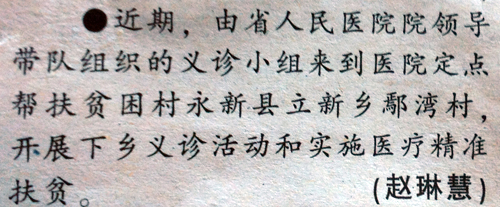 ●近期，由省人民医院院领导
带队组织的义诊小组来到医院定点
帮扶贫困村永新县立新乡鄢湾村，
开展下乡义诊活动和实施医疗精准
扶贫。 (赵琳慧)